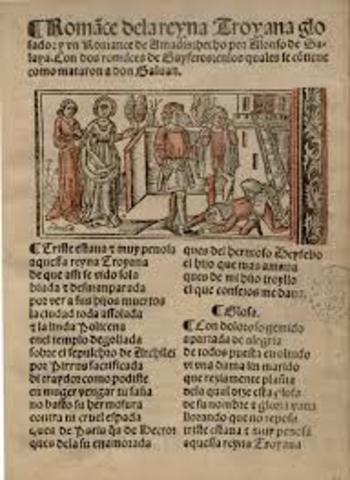 ¶Romãce dela reyna Troyana glo
sado: y vn Romance de Amadis: hecho por Alonso de Sa-
laya. Con dos romãces de Gayferos: enlos quales se cõtiene
como mataron a don Galuan.
¶Triste estaua ⁊ muy penosa
aquessa reyna Troyana
de que assi se vido sola
biuda ⁊ desmamparada
por ver a sus hijos muertos
la ciudad toda assolada
⁊ la linda Policena
enel templo degollada
sobre el sepulchro de Archiles
por Pirrus sacrificada
di traydor como podiste
en muger vengar tu saña
no basto su hermosura
contra tu cruel espada
ques de Paris q̃s de Hector
ques dela su enamorada
ques del hermoso Deyfebo
el hijo que mas amaua
ques de mi hijo troylo
el que consejos me daua.
¶Glosa.
¶Con doloroso gemido
apartada de alegria
de todos puesta en oluido
vi vna dama sin marido
que reziamente plañia
dela qual dize esta glosa
de su nombre ⁊ gloria vana
llorando que no reposa
triste estaua ⁊ muy penosa
aquessa reyna Troyana